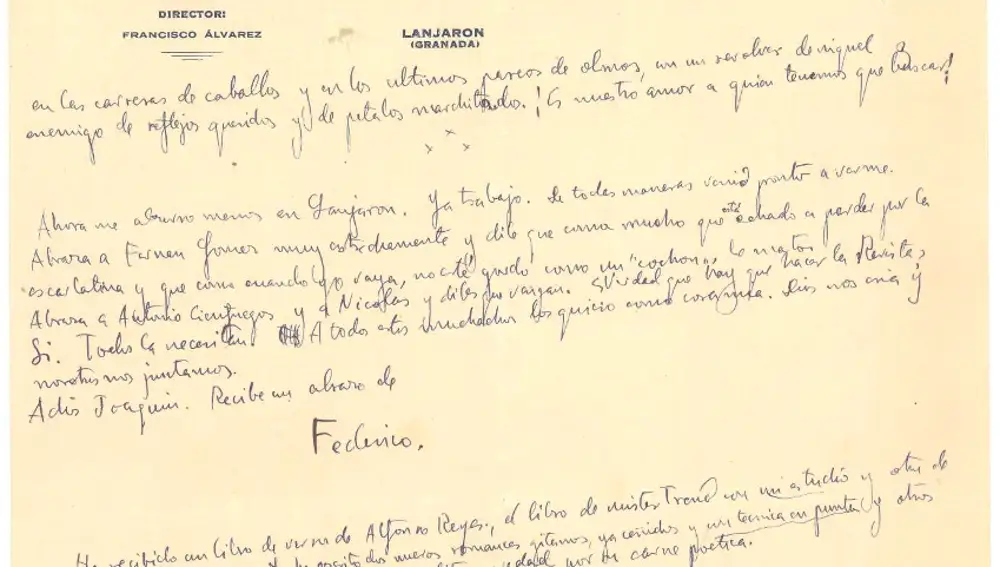 DIRECTOR:
FRANCISCO ÁLVAREZ
LANJARON
(GRANADA)
en las carreras de caballos y en los ultimos paseos de olmos, en un revolver de niquel
enemigo de reflejos queridos y de petalos marchitados. ¡Es nuestro amor a quien tenemos que buscar!
x
x x
Ahora me aburro menos en Lanjaron. Ya trabajo. De todas maneras venid pronto a verme.
Abraza a Fernan Gomez muy estrechamente y dile que coma mucho que está echado a perder por la
escarlatina y que como cuando yo vaya, no esté gordo como un "cochon", lo mato
Abraza a Antonio Cienfuegos y a Nicolas y diles que vengan. ¿Verdad que hay que hacer la Revista?
Si. Todos la necesitan. A todos estos muchachos los quiero como Dios nos cria y
nosotros nos juntamos.
Adios Joaquin. Recibe un abrazo de
Federico.
He recibido un libro de versos de Alfonso Reyes, el libro de mister Trend con mi estudio y otro de
escrito dos nuevos romances gitanos, ya ceñidos y un tecnica en punta y otros
por su carne poetica.